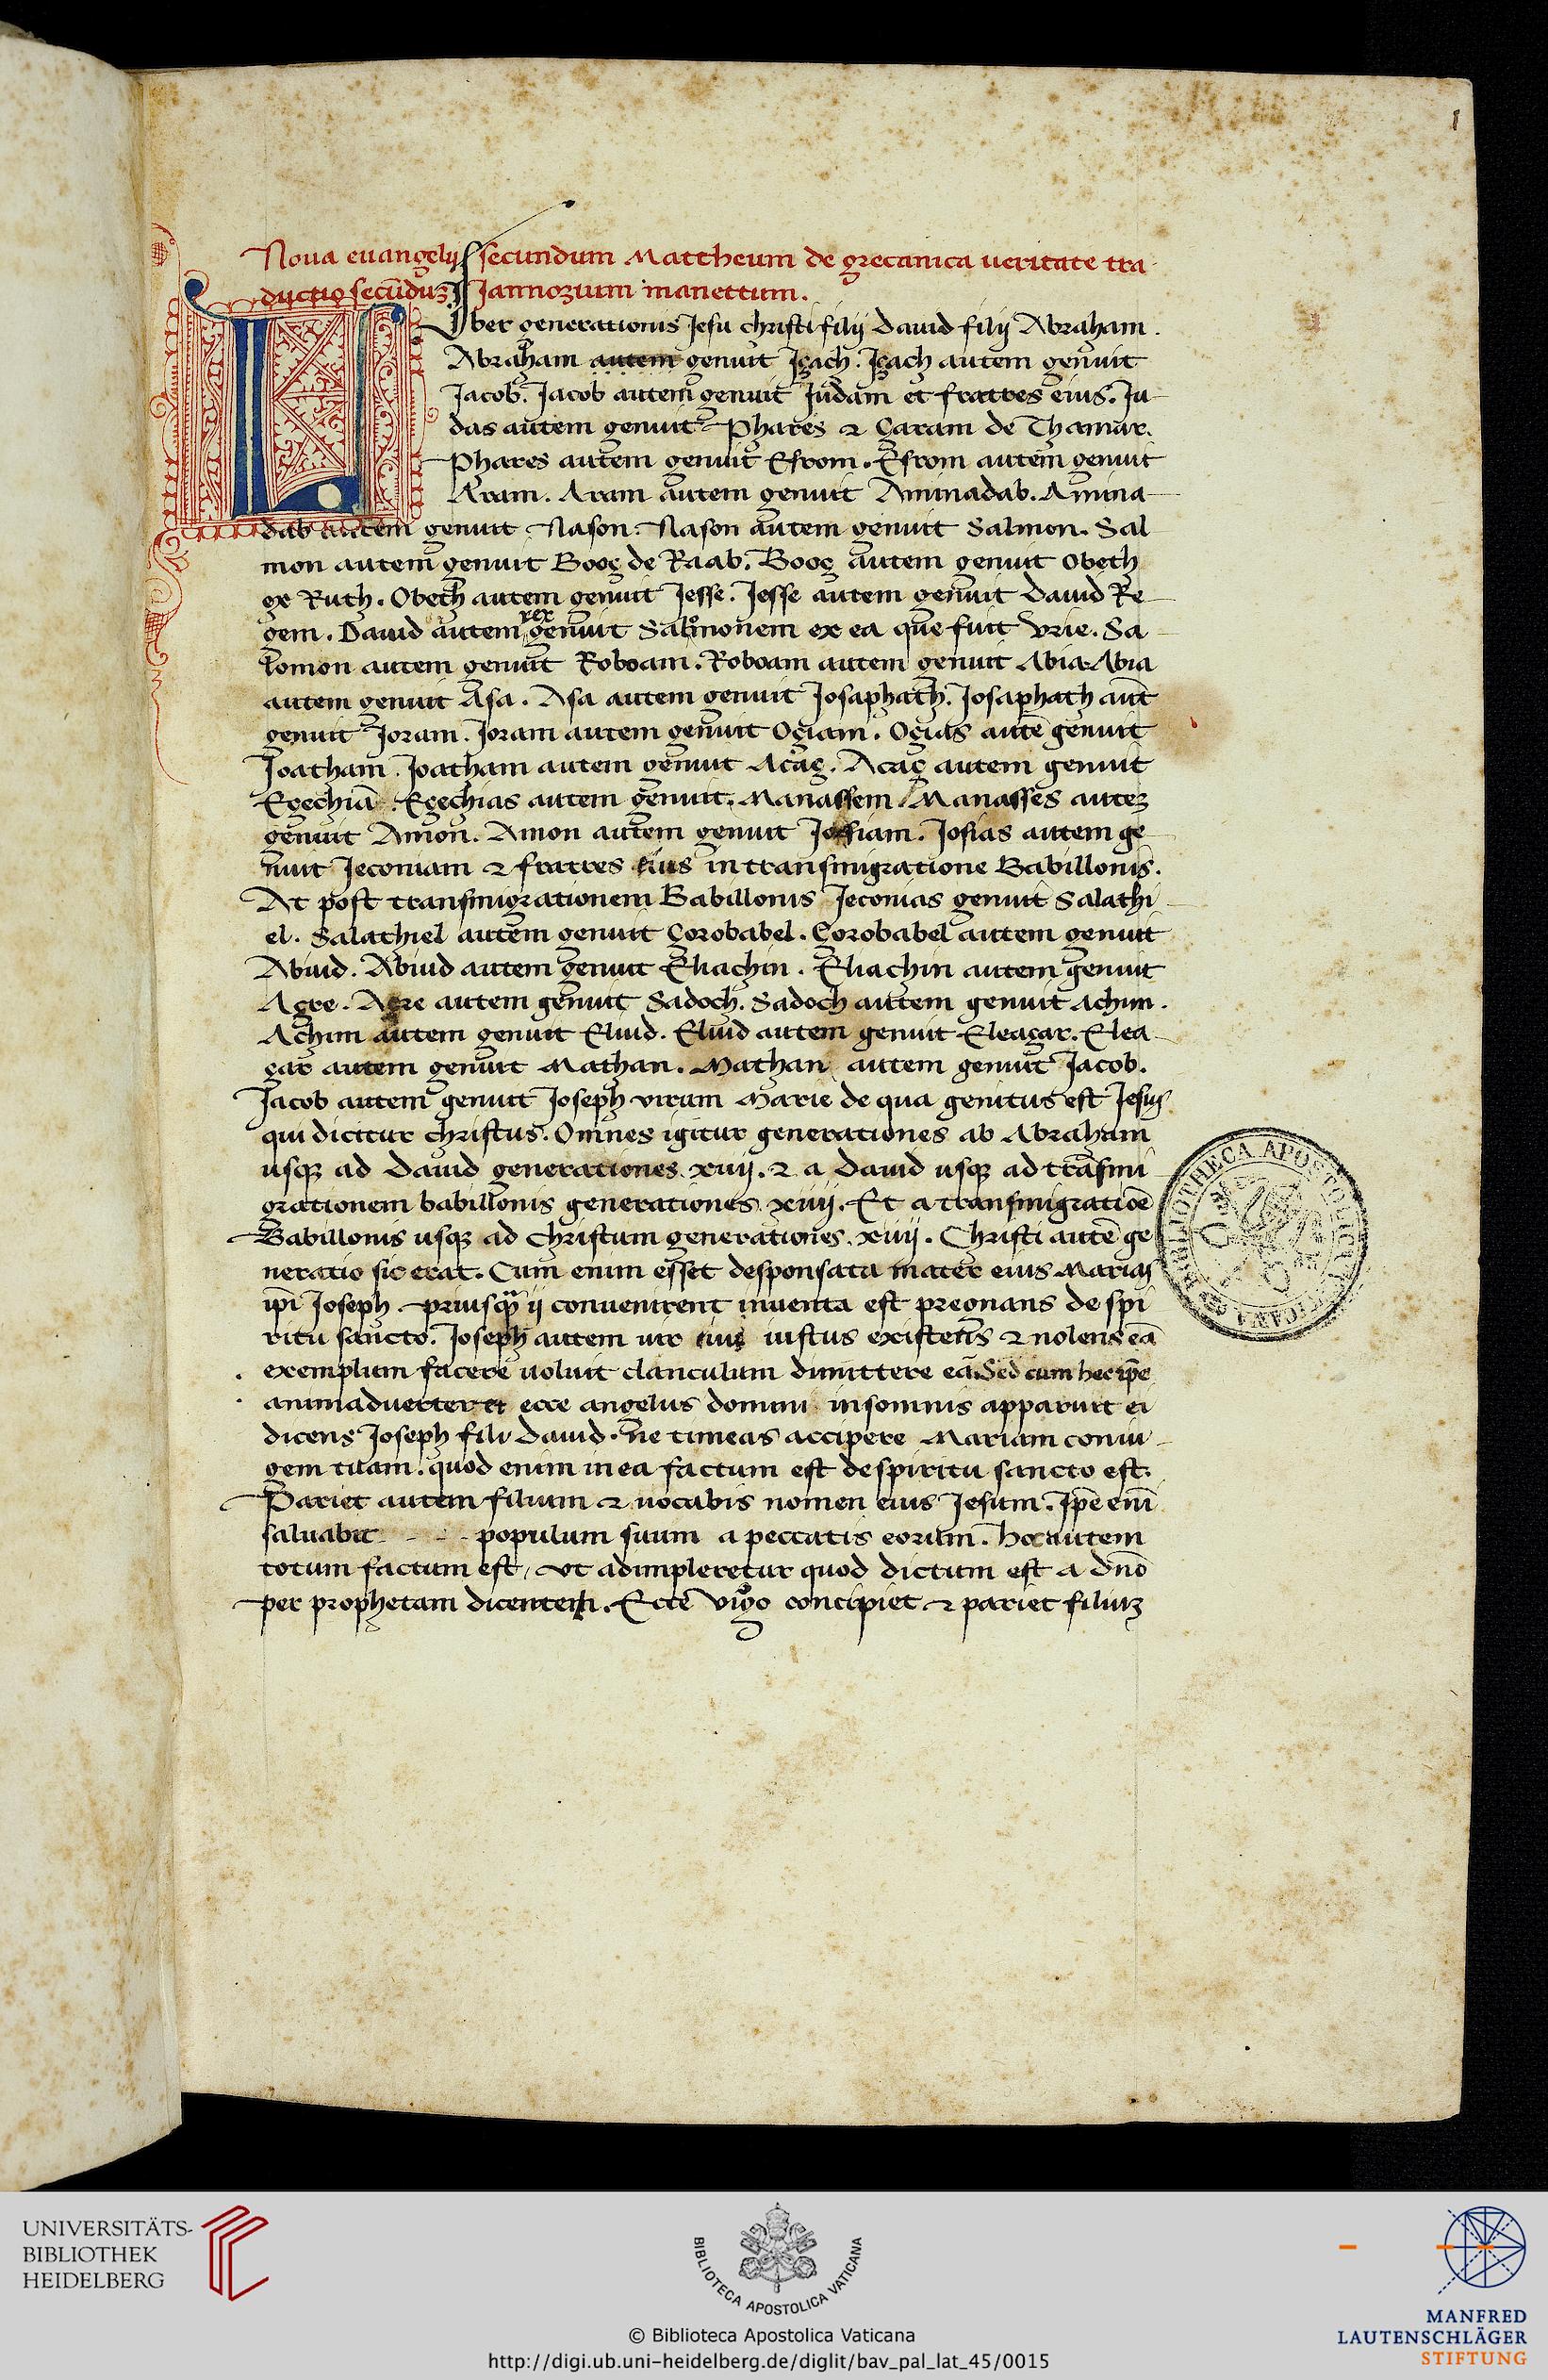 1
Noua euangelij secundum Mattheum de grecanica ueritate tra
ductio secūduȝ Jannozium manettum.
Iber generationis Jesu christi filij dauid filij Abraham.
Abraham autem genuit Içach. Içach autem genuit
Jacob. Jacob autem genuit Judam et fratres eius. Ju
das autem genuit Phares ⁊ Çaram de Thamar.
Phares autem genuit Esrom. Esrom autem genuit
Aram. Aram autem genuit Aminadab. Amina
dab autem genuit Nason. Nason autem genuit Salmon. Sal
mon autem genuit Booç de Raab. Booç autem genuit Obeth
ex Ruth. Obeth autem genuit Jesse. Jesse autem genuit dauid Re
rex
gem. Dauid autem genuit Salomonem ex ea que fuit vrie. Sa
lomon autem genuit Roboam. Roboam autem genuit Abia. Abia
autem genuit Asa. Asa autem genuit Josaphath. Josaphath aūt
genuit Joram. Joram autem genuit Oçiam. Oçias autē genuit
Joatham. Joatham autem genuit Acaç. Acaç autem genuit
Eçechiā. Eçechias autem genuit Manassem. Manasses auteȝ
genuit Amon. Amon autem genuit Josiam. Josias autem ge
nuit Jeconiam ⁊ fratres eius in transmigratione Babillonis.
At post transmigrationem Babillonis Jeconias genuit Salathi
el. Salathiel autem genuit Çorobabel. Çorobabel autem genuit
Abiud. Abiud autem genuit Eliachin. Eliachin autem genuit
Açre. Açre autem genuit Sadoch. Sadoch autem genuit Achim.
Achim autem genuit Eliud. Eliud autem genuit Eleaçar. Elea
çar autem genuit Mathan. Mathan autem genuit Jacob.
Jacob autem genuit Joseph virum Marie de qua genitus est Jesus
qui dicitur christus. Omnes igitur generationes ab Abraham
usqȝ ad dauid generationes xiiij. ⁊ a dauid usqȝ ad trāsmi
grationem babillonis generationes xiiij. Et a transmigratiōe
Babillonis usqȝ ad christum generationes xiiij. Christi autē ge
neratio sic erat. Cum enim esset desponsata mater eius Maria
ipi Joseph priusqȝ ij conuenirent inuenta est pregnans de spi
ritu sancto. Joseph autem uir eius iustus existens ⁊ nolens eā
exemplum facere uoluit clanculum dimittere eā. Sed cum hec ipē
animaduerteret ecce angelus domini in somnis apparuit ei
dicens Joseph fili dauid. ne timeas accipere Mariam coniu
gem tuam. quod enim in ea factum est de spiritu sancto est.
Pariet autem filium ⁊ uocabis nomen eius Jesum. Ipē enī
saluabit populum suum a peccatis eorum. hoc autem
totum factum est, ut adimpleretur quod dictum est a dnō
per prophetam dicentem. Ecce virgo concipiet ⁊ pariet filiuȝ
BIBLIOTHECA APOSTOLICA VATICANA
UNIVERSITÄTS-
BIBLIOTHEK
HEIDELBERG
BIBLIOTECA APOSTOLICA VATICANA
© Biblioteca Apostolica Vaticana
http://digi.ub.uni-heidelberg.de/diglit/bav_pal_lat_45/0015
MANFRED
LAUTENSCHLÄGER
STIFTUNG